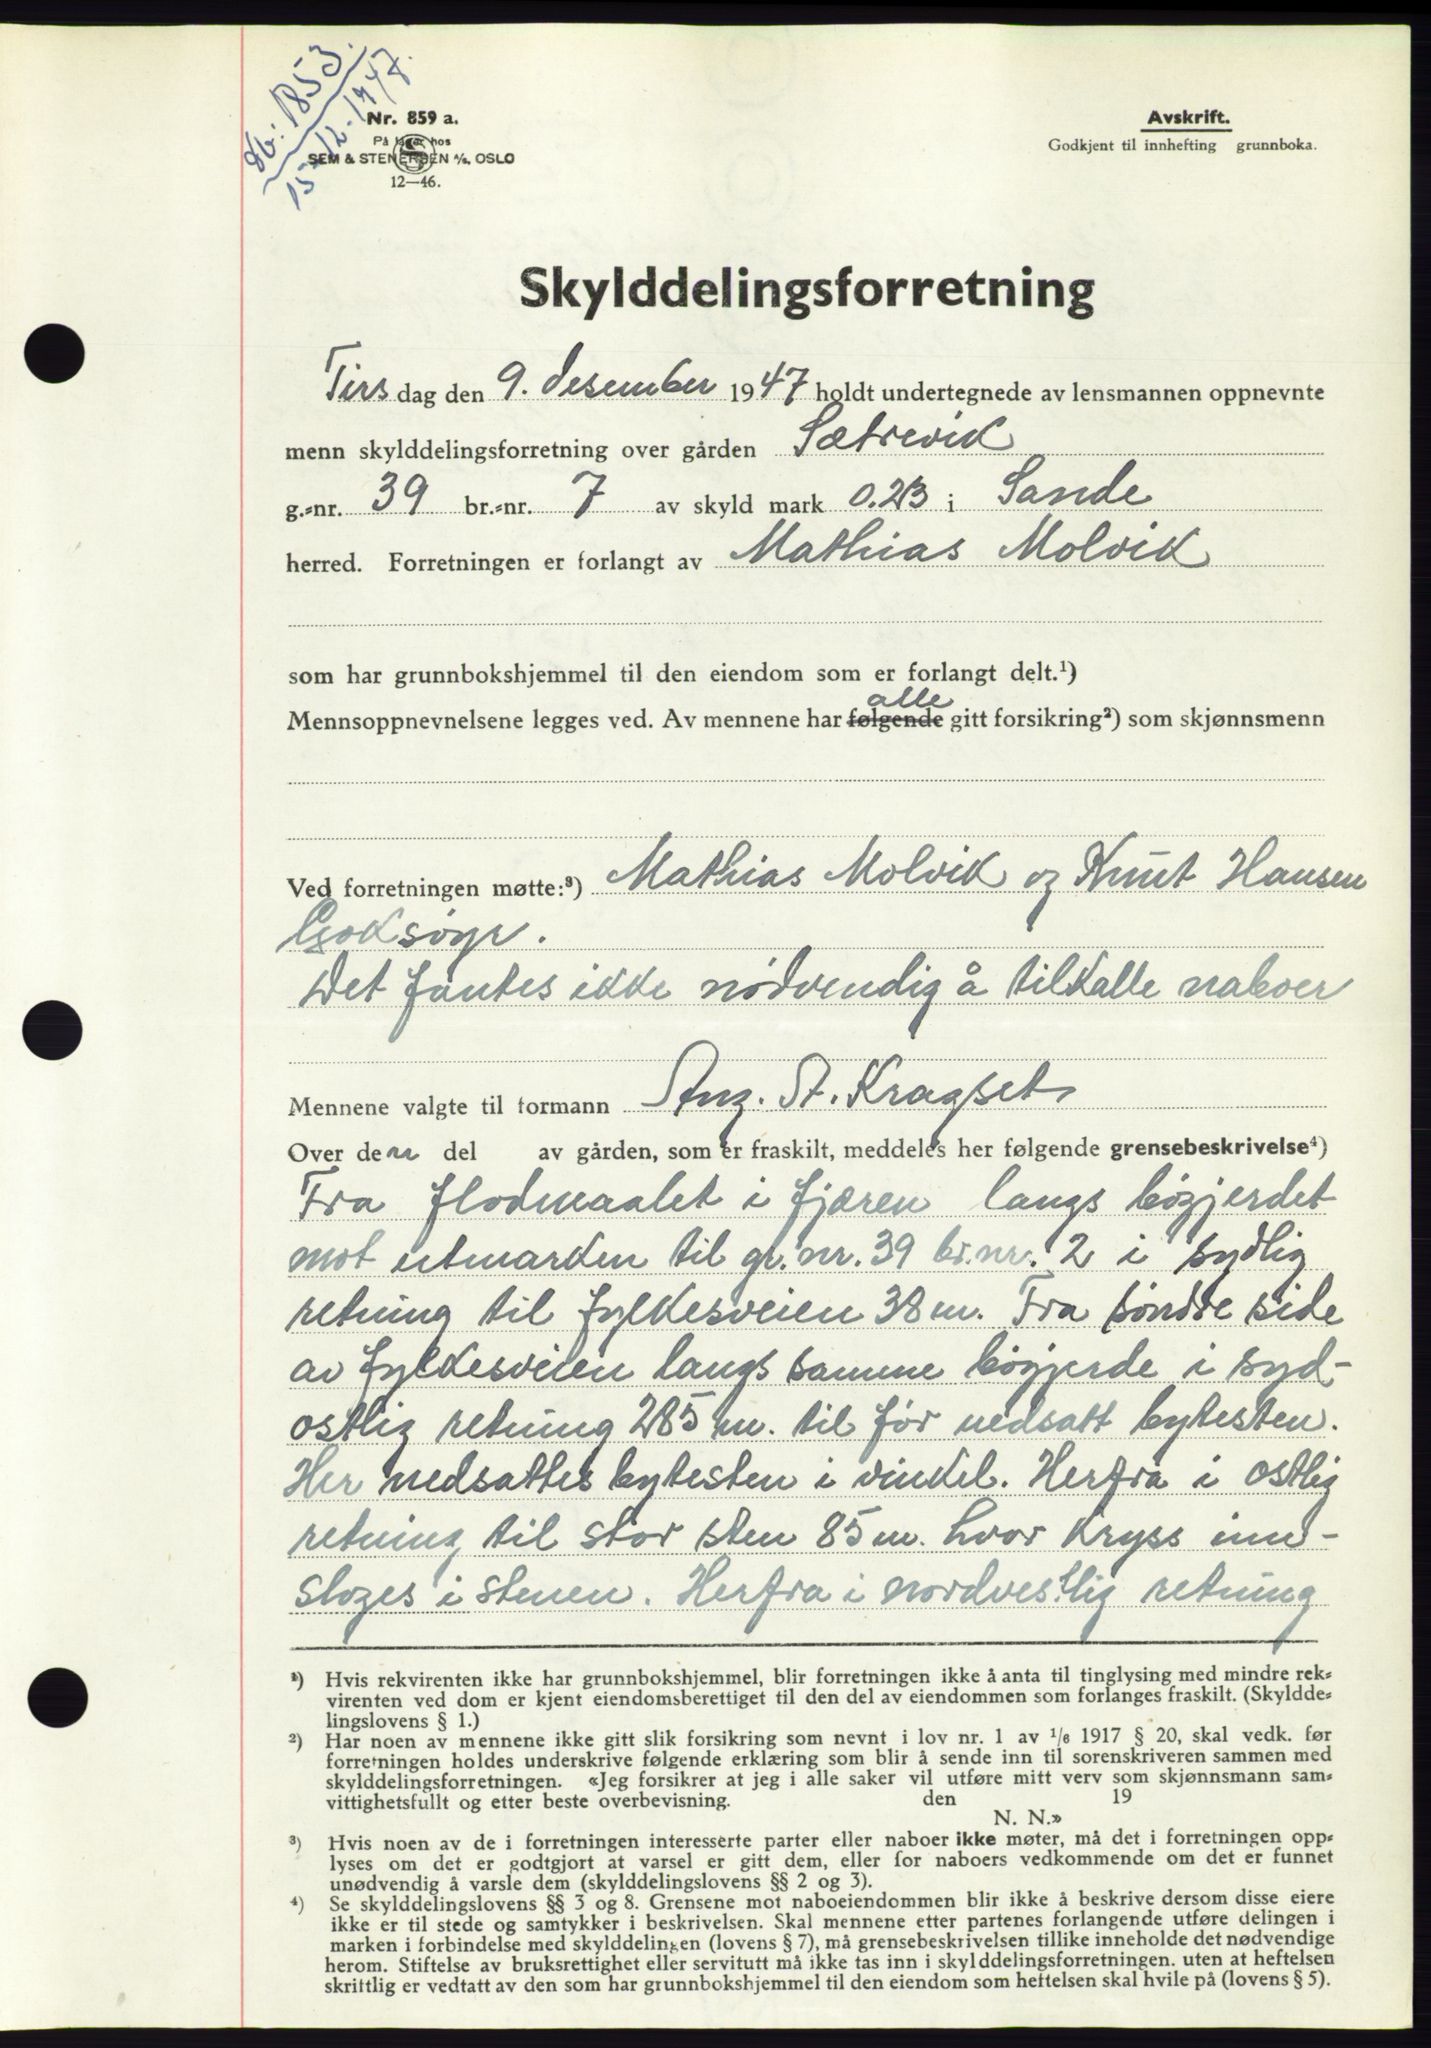 Db: 1853.
15-12-1947.
Nr. 859 a.
På lager hos
SEM & STENERSEN A/S, OSLO
12—46.
Avskrift.
Godkjent til innhefting grunnboka.
Skylddelingsforretning
Tirsdag den 9. desember 1947 holdt undertegnede av lensmannen oppnevnte
menn skylddelingsforretning over gården Sætrevik
g.-nr. 39 br.-nr. 7 av skyld mark 0.23 i Sande
herred. Forretningen er forlangt av Mathias Molvik
som har grunnbokshjemmel til den eiendom som er forlangt delt.¹)
alle
Mennsoppnevnelsene legges ved. Av mennene har følgende gitt forsikring²) som skjønnsmenn
Ved forretningen møtte:³) Mathias Molvik og Knut Hansen
Goksøyr.
Det fantes ikke nødvendig å tilkalle naboer
Mennene valgte til formann A. Kragset
Over den del av gården, som er fraskilt, meddeles her følgende grensebeskrivelse⁴)
Fra flodmaalet i fjæren langs bøgjerdet
mot utmarken til gr. nr. 39 br. nr. 2 i sydlig
retning til fylkesveien 38 m. Fra søndre side
av fylkesveien langs samme bøgjerde i syd-
ostlig retning 285 m. til før nedsatt bytesten.
Her nedsattes bytesten i vinkel. Herfra i ostlig
retning til stor sten 85 m. hvor kryss inn-
sloges i stenen. Herfra i nordvestlig retning
¹) Hvis rekvirenten ikke har grunnbokshjemmel, blir forretningen ikke å anta til tinglysing med mindre rek-
virenten ved dom er kjent eiendomsberettiget til den del av eiendommen som forlanges fraskilt. (Skyldde-
lingslovens § 1.)
²) Har noen av mennene ikke gitt slik forsikring som nevnt i lov nr. 1 av 1/6 1917 § 20, skal vedk. før
forretningen holdes underskrive følgende erklæring som blir å sende inn til sorenskriveren sammen med
skylddelingsforretningen. «Jeg forsikrer at jeg i alle saker vil utføre mitt verv som skjønnsmann sam-
vittighetsfullt og etter beste overbevisning. den 19
N. N.»
³) Hvis noen av de i forretningen interesserte parter eller naboer ikke møter, må det i forretningen opp-
lyses om det er godtgjort at varsel er gitt dem, eller for naboers vedkommende om det er funnet
unødvendig å varsle dem (skylddelingslovens §§ 2 og 3).
⁴) Se skylddelingslovens §§ 3 og 8. Grensene mot naboeiendommen blir ikke å beskrive dersom disse eiere
ikke er til stede og samtykker i beskrivelsen. Skal mennene etter partenes forlangende utføre delingen i
marken i forbindelse med skylddelingen (lovens § 7), må grensebeskrivelsen tillike inneholde det nødvendige
herom. Stiftelse av bruksrettighet eller servitutt må ikke tas inn i skylddelingsforretningen. uten at heftelsen
skriftlig er vedtatt av den som har grunnbokshjemmel til den eiendom som heftelsen skal hvile på (lovens § 5).